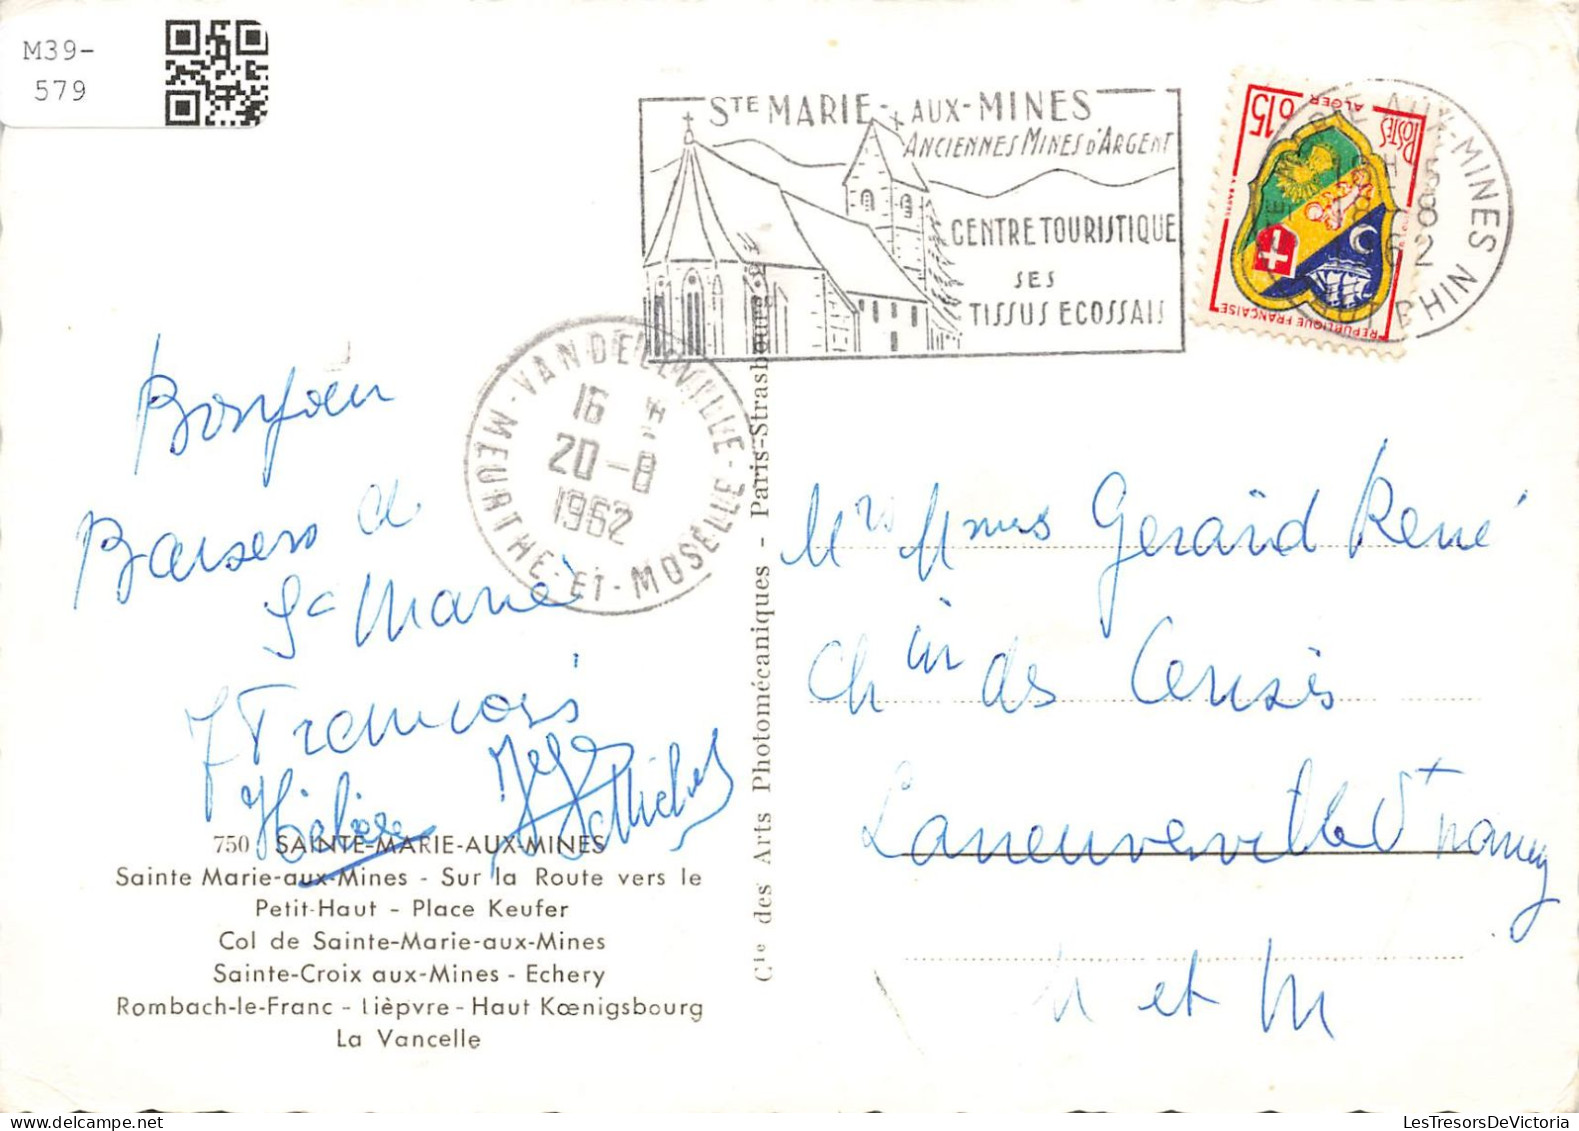 M39-
579
STE MARIE-AUX-MINES
ANCIENNES MINES D'ARGENT
CENTRE TOURISTIQUE
SES
TISSUS ECOSSAIS
0,15
POSTES
ALGER
REPUBLIQUE FRANÇAISE
AUX-MINES
RHIN
18-8
62
VANDELEVILLE
16 H
20-8
1962
MEURTHE-ET-MOSELLE
Bonjour
Baisers de
Ste Marie
François
Hélène
Michel
750 SAINTE-MARIE-AUX-MINES
Sainte Marie-aux-Mines - Sur la Route vers le
Petit-Haut - Place Keufer
Col de Sainte-Marie-aux-Mines
Sainte-Croix aux-Mines - Echery
Rombach-le-Franc - Lièpvre - Haut Kœnigsbourg
La Vancelle
Cie des Arts Photomécaniques - Paris-Strasbourg
Mrs Mmes Gérard René
Chin des
Laneuveville dt Nancy
M et M
LesTresorsDeVictoria.com